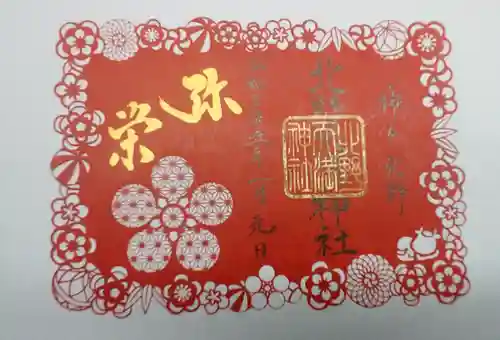 神戸北野
北野天満神社
北野
天満
神社
元日
弥栄